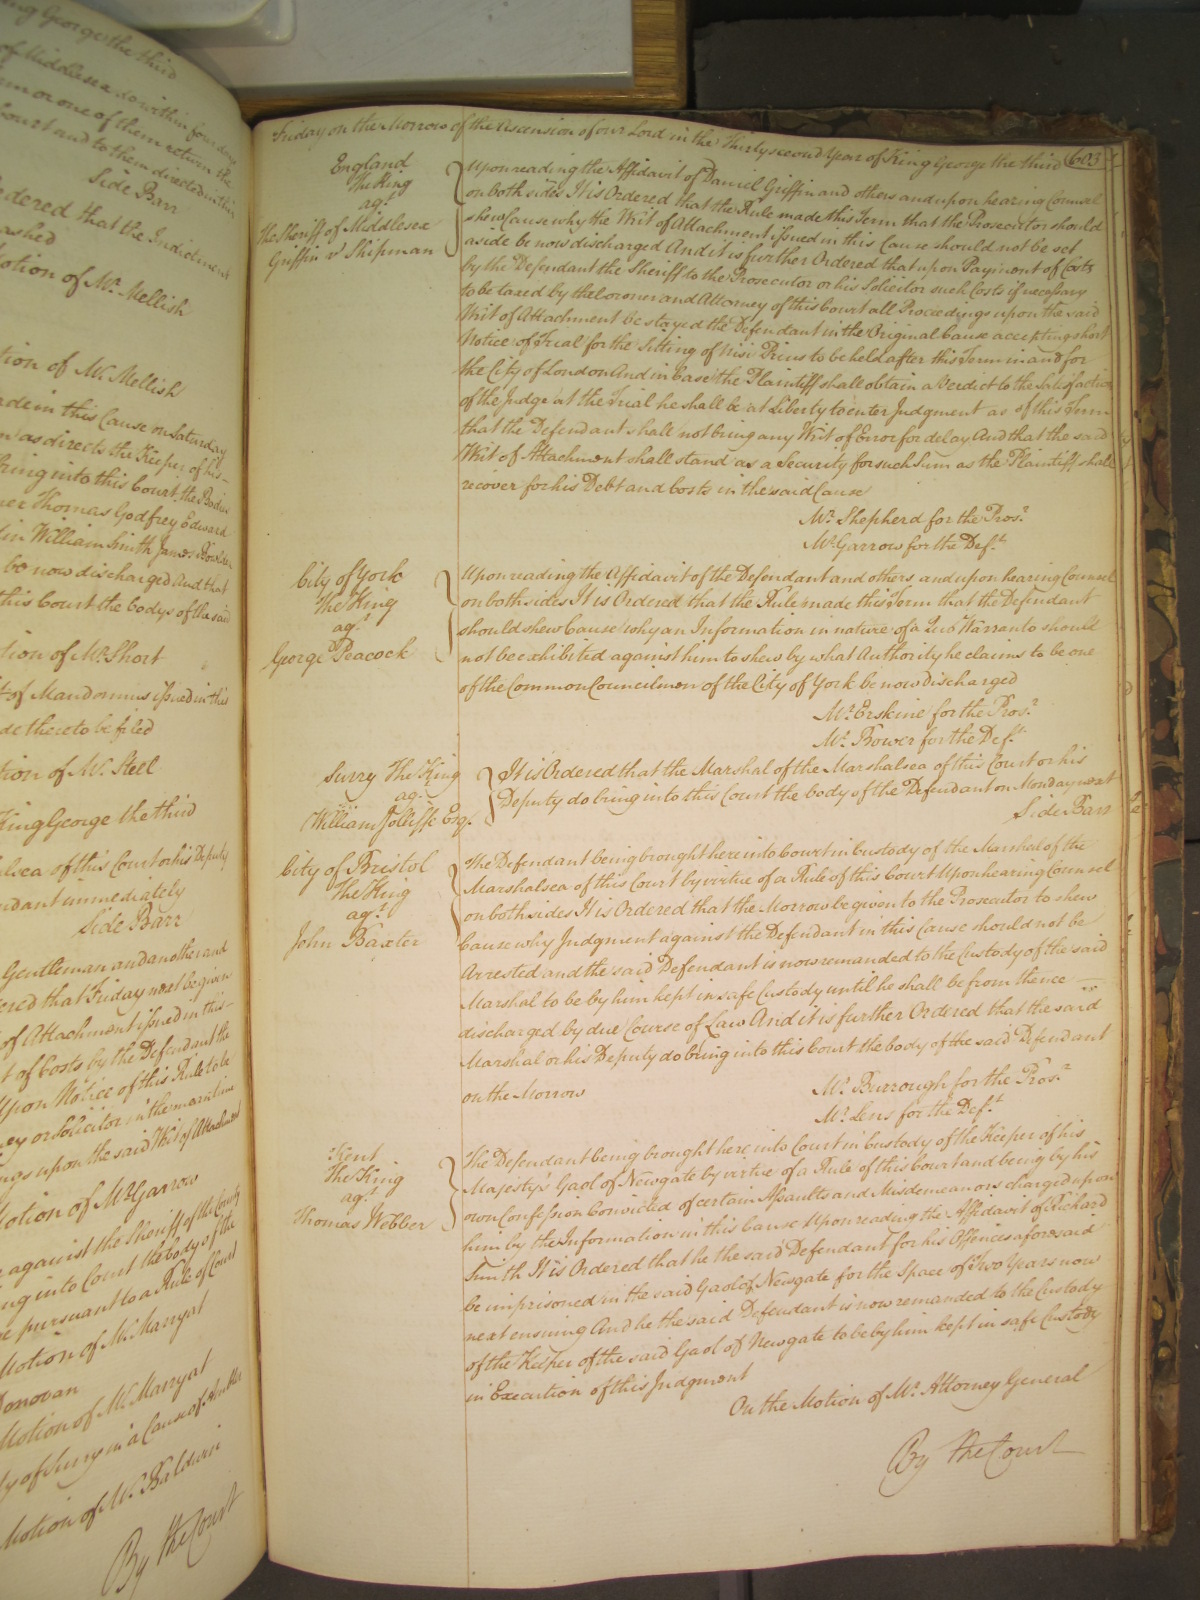 ing George the third
of Middlesex do within four days
them or one of them return the
Court and to them directed in this
Side Barr
Ordered that the Indictment
quashed
Motion of Mr. Mellish
Motion of Mr. Mellish
made in this Cause on Saturday
as directs the Keeper of his
bring into this Court the Bodies
Thomas Godfrey Edward
William Smith James
be now discharged And that
this Court the bodys of the said
Motion of Mr. Short
of Mandamus issued in this
made thereto be filed
Motion of Mr. Steel
King George the third
Marshalsea of this Court or his Deputy
Defendant immediately
Side Barr
Gentleman and another and
Ordered that Friday next be given
of Attachment issued in this
of Costs by the Defendant the
Upon Notice of this Rule to be
or Solicitor in the meantime
upon the said Writ of Attachment
Motion of Mr. Garrow
against the Sheriff of the County
bring into Court the body of the
pursuant to a Rule of Court
Motion of Mr. Marryat
Donovan
Motion of Mr. Marryat
of Surry in a Cause of
Motion of Mr. Baldwin
By the Court
Friday on the Morrow of the Ascension of our Lord in the Thirty second Year of King George the third 603
England
The King
agt.
The Sheriff of Middlesex
Griffin v Shipman
Upon reading the Affidavit of Daniel Griffin and others and upon hearing Counsel
on both sides It is Ordered that the Rule made this Term that the Prosecutor should
shew Cause why the Writ of Attachment issued in this Cause should not be set
aside be now discharged And it is further Ordered that upon Payment of Costs
by the Defendant the Sheriff to the Prosecutor or his Solicitor such Costs if necessary
to be taxed by the Coroner and Attorney of this Court all Proceedings upon the said
Writ of Attachment be stayed the Defendant in the Original Cause accepting short
Notice of Trial for the Sitting of Nisi Prius to be held after this Term in and for
the City of London And in Case the Plaintiff shall obtain a Verdict to the satisfaction
of the Judge at the Trial he shall be at Liberty to enter Judgment as of this Term
that the Defendant shall not bring any Writ of Error for delay And that the said
Writ of Attachment shall stand as a Security for such Sum as the Plaintiff shall
recover for his Debt and Costs in the said Cause
Mr. Shepherd for the Prosr.
Mr. Garrow for the Deft.
City of York
The King
agt.
George Peacock
Upon reading the Affidavit of the Defendant and others and upon hearing Counsel
on both sides It is Ordered that the Rule made this Term that the Defendant
should shew Cause why an Information in nature of a Quo Warranto should
not be exhibited against him to shew by what Authority he claims to be one
of the Common Councilmen of the City of York be now discharged
Mr. Erskine for the Prosr.
Mr. Bower for the Deft.
Surry The King
agt.
William Jolliffe Esqr.
It is Ordered that the Marshal of the Marshalsea of this Court or his
Deputy do bring into this Court the body of the Defendant on Monday next
Side Barr
City of Bristol
The King
agt.
John Baxter
The Defendant being brought here into Court in Custody of the Marshal of the
Marshalsea of this Court by virtue of a Rule of this Court Upon hearing Counsel
on both sides It is Ordered that the Morrow be given to the Prosecutor to shew
Cause why Judgment against the Defendant in this Cause should not be
Arrested and the said Defendant is now remanded to the Custody of the said
Marshal to be by him kept in safe Custody until he shall be from thence
discharged by due Course of Law And it is further Ordered that the said
Marshal or his Deputy do bring into this Court the body of the said Defendant
on the Morrow
Mr. Burrough for the Prosr.
Mr. Lens for the Deft.
Kent
The King
agt.
Thomas Webber
The Defendant being brought here into Court in Custody of the Keeper of his
Majestys Gaol of Newgate by virtue of a Rule of this Court and being by his
own Confession Convicted of certain Assaults and Misdemeanors charged upon
him by the Information in this Cause Upon reading the Affidavit of Richard
Smith It is Ordered that he the said Defendant for his Offences aforesaid
be imprisoned in the said Gaol of Newgate for the Space of Two Years now
next ensuing And he the said Defendant is now remanded to the Custody
of the Keeper of the said Gaol of Newgate to be by him kept in safe Custody
in Execution of this Judgment
On the Motion of Mr. Attorney General
By the Court